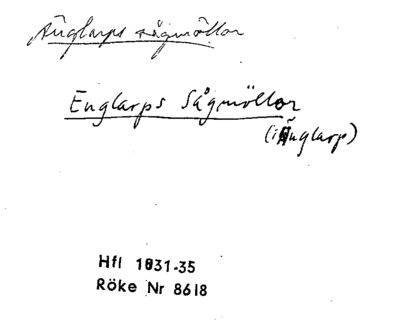 Änglarps sågmöllor
Englarps Sågmöllor
(i Änglarp)
Hfl 1831-35
Röke Nr 8618